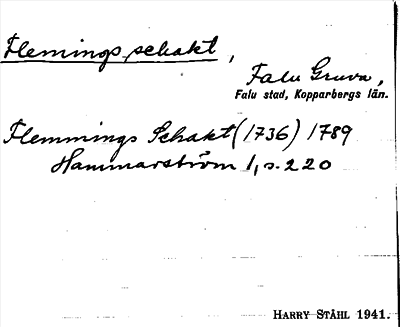 Flemings schakt,
Falu Gruva,
Falu stad, Kopparbergs län.
Flemmings Schakt (1736) 1789
Hammarström 1, s. 220
HARRY STÅHL 1941.